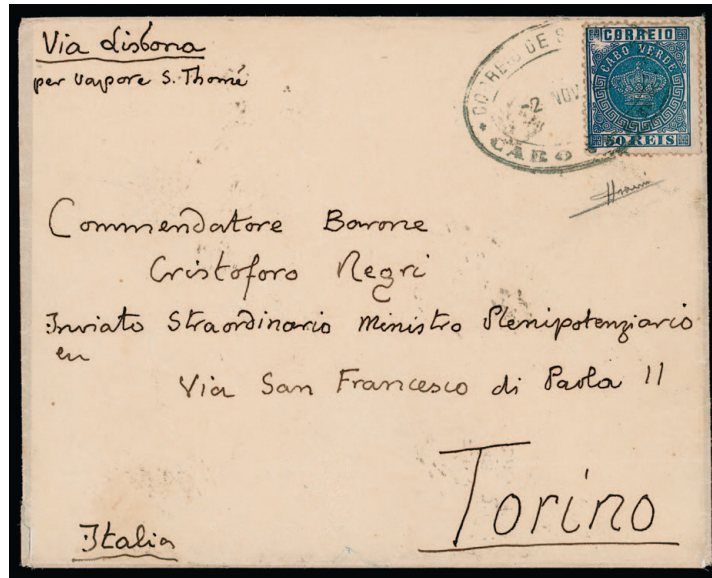 Via Lisbona
per vapore S. Thomé
CORREIO DE S
-2 NOV
CABO
CORREIO
CABO VERDE
50 REIS
Commendatore Barone
Cristoforo Negri
Inviato Straordinario Ministro Plenipotenziario
en
Via San Francesco di Paola 11
Torino
Italia